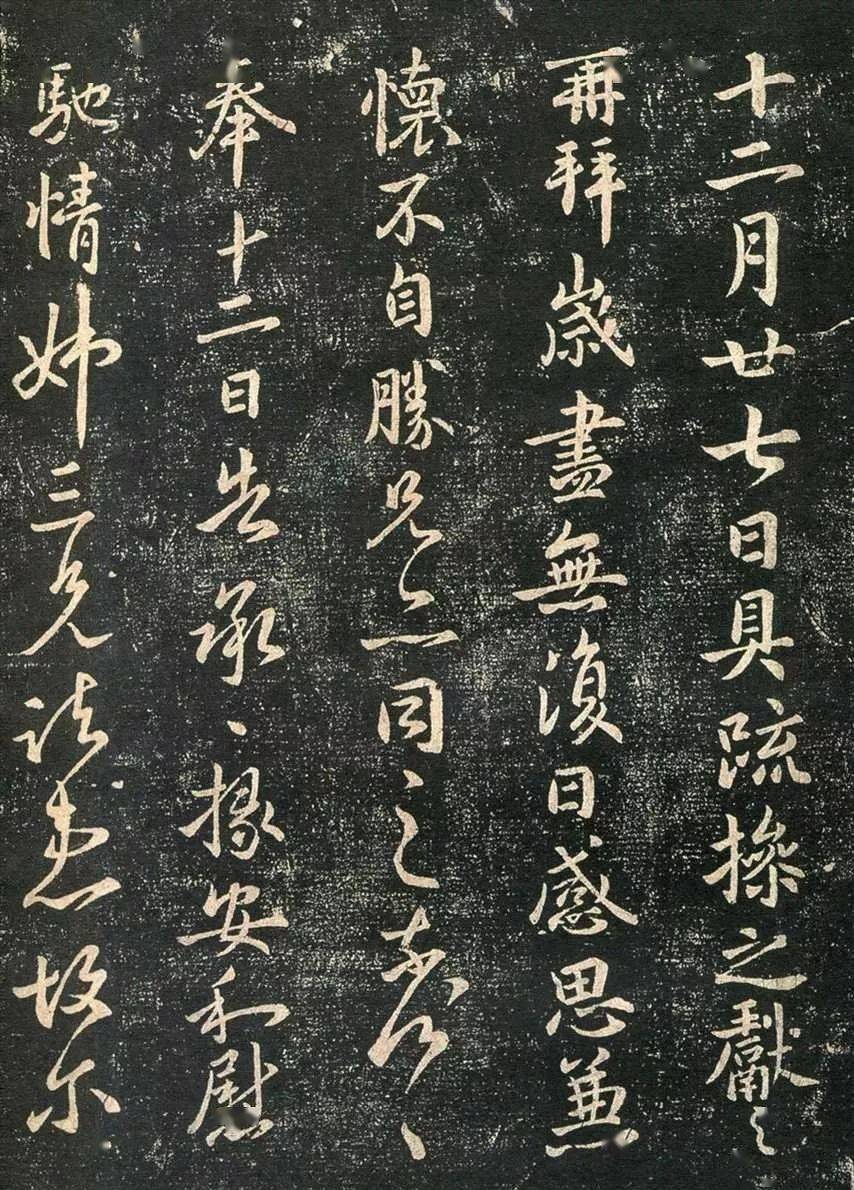 十二月廿七日具疏操之獻之
再拜歲盡無復日感思兼
懷不自勝兄亦同之奈何〻
奉十二日告承〻安和慰
馳情姊三兄諸患故尔